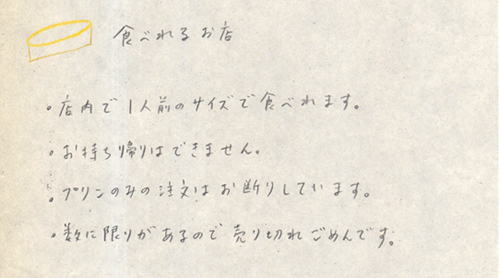 食べれるお店
・店内で1人前のサイズで食べれます。
・お持ち帰りはできません。
・プリンのみの注文はお断りしています。
・数に限りがあるので売り切れごめんです。